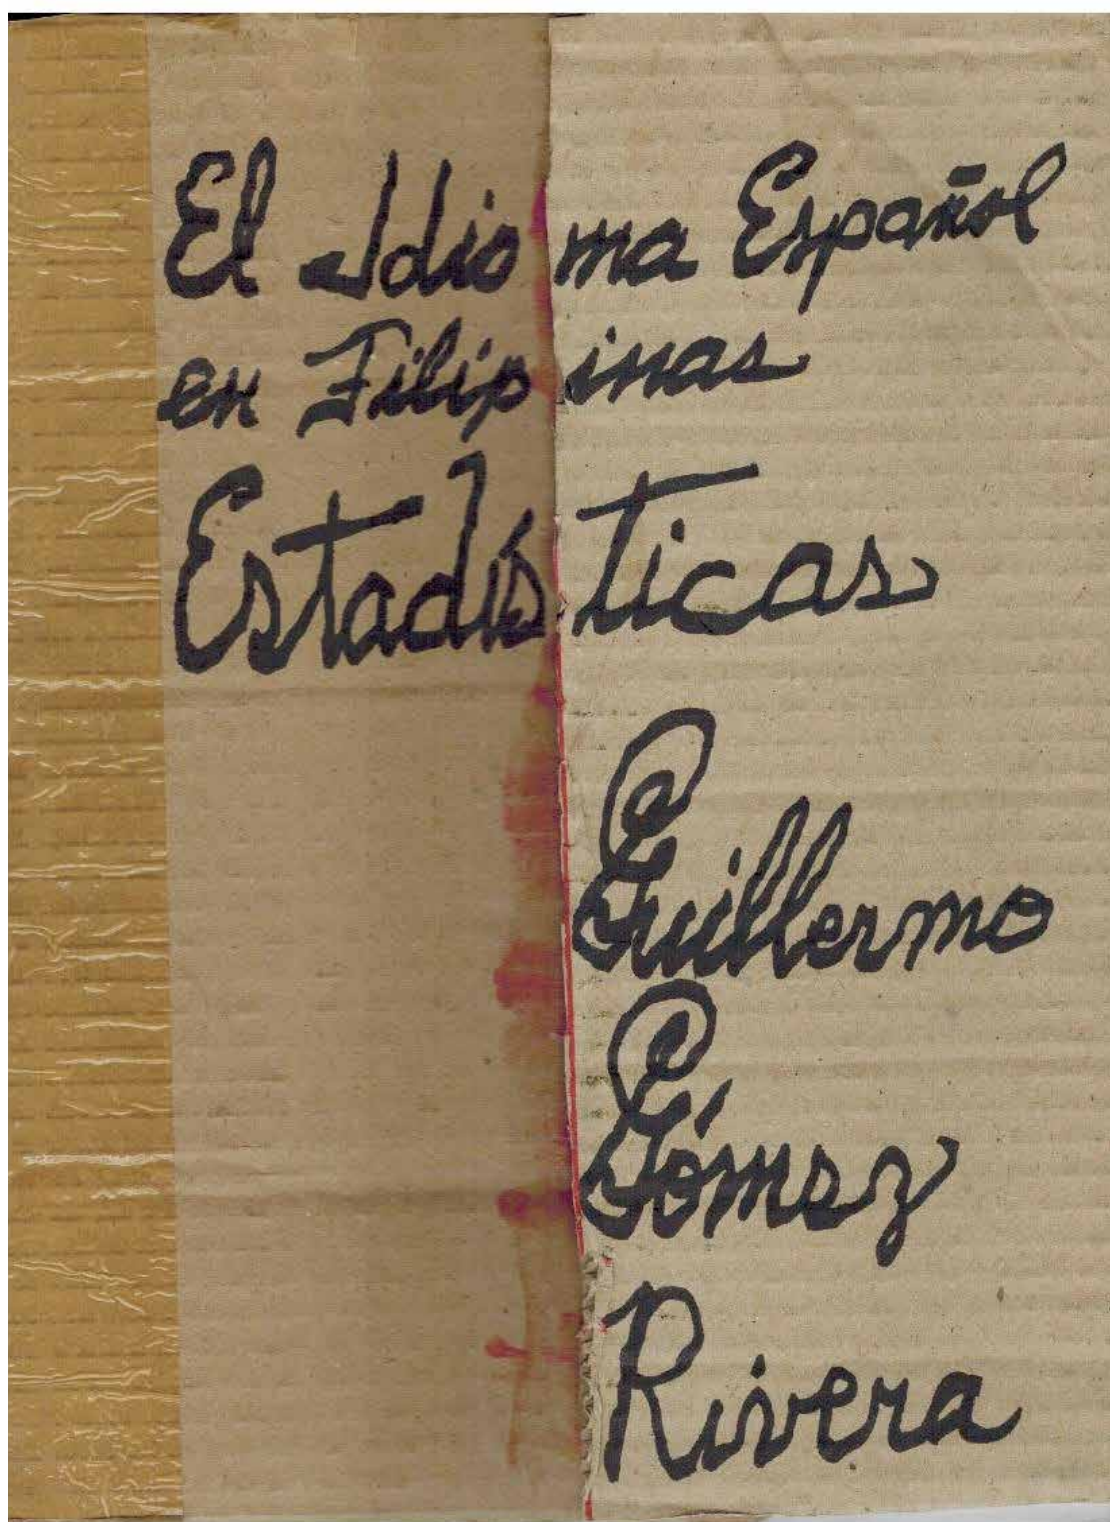 El Idioma Español
en Filipinas
Estadísticas
Guillermo
Gómez
Rivera